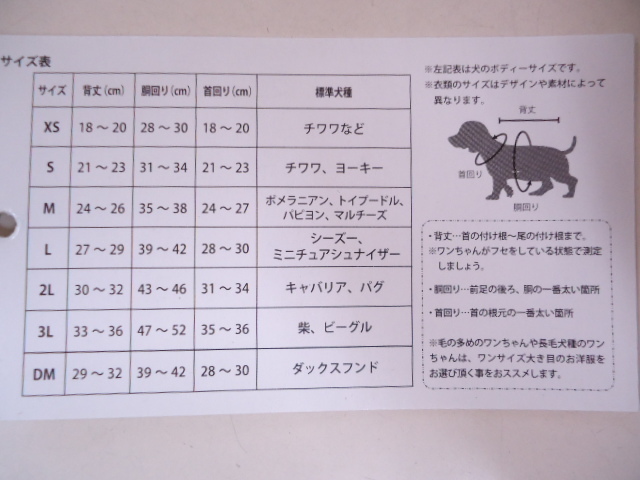 サイズ表
サイズ 背丈(cm) 胴回り(cm) 首回り(cm) 標準犬種
XS 18～20 28～30 18～20 チワワなど
S 21～23 31～34 21～23 チワワ、ヨーキー
M 24～26 35～38 24～27 ポメラニアン、トイプードル、
パピヨン、マルチーズ
L 27～29 39～42 28～30 シーズー、
ミニチュアシュナイザー
2L 30～32 43～46 31～34 キャバリア、パグ
3L 33～36 47～52 35～36 柴、ビーグル
DM 29～32 39～42 28～30 ダックスフンド
※左記表は犬のボディーサイズです。
※衣類のサイズはデザインや素材によって
異なります。
背丈
首回り
胴回り
・背丈…首の付け根～尾の付け根まで。
※ワンちゃんがフセをしている状態で測定
しましょう。
・胴回り…前足の後ろ、胴の一番太い箇所
・首回り…首の根元の一番太い箇所
※毛の多めのワンちゃんや長毛犬種のワン
ちゃんは、ワンサイズ大き目のお洋服を
お選び頂く事をおススメします。